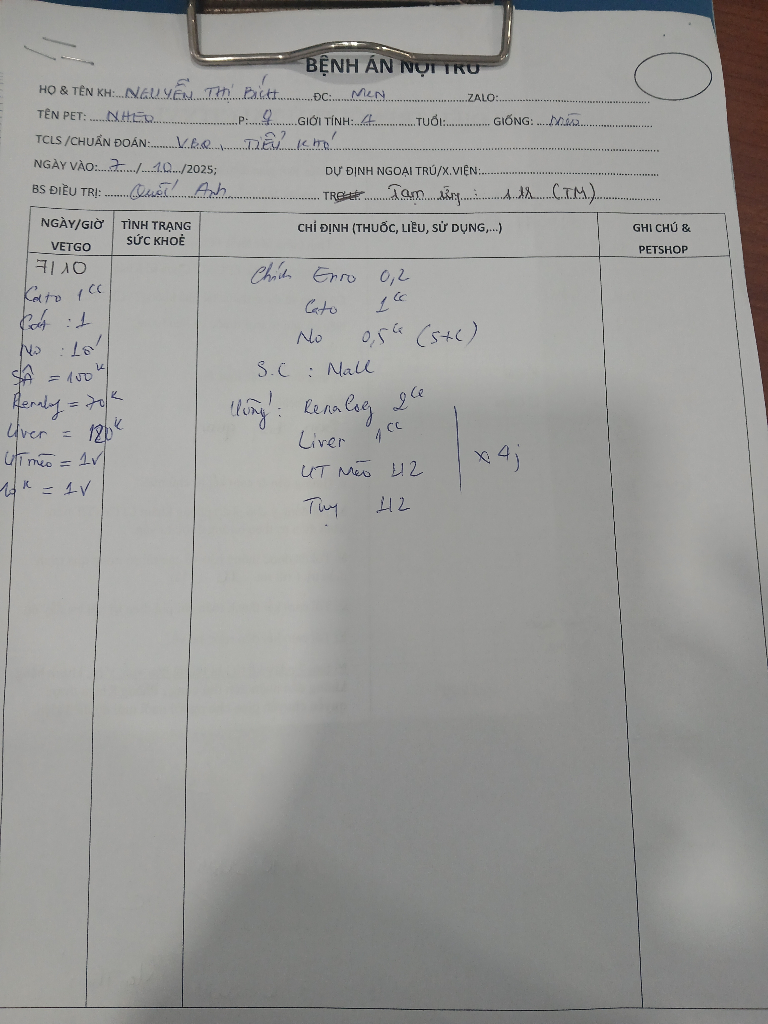 BỆNH ÁN NỘI TRÚ
HỌ & TÊN KH: NGUYỄN THỊ BÍCH ĐC: MCN ZALO:
TÊN PET: NHEO P: GIỚI TÍNH: TUỔI: GIỐNG: Mèo
TCLS /CHUẨN ĐOÁN: TIỂU KHÓ
NGÀY VÀO: 7 / 10 /2025; DỰ ĐỊNH NGOẠI TRÚ/X.VIỆN:
BS ĐIỀU TRỊ: Quốc Anh Tạm ứng: (TM)
NGÀY/GIỜ VETGO
TÌNH TRẠNG SỨC KHOẺ
CHỈ ĐỊNH (THUỐC, LIỀU, SỬ DỤNG,...)
GHI CHÚ & PETSHOP
7/10
Cato 1cc
: 1
No :
SÂ = 100k
Renalog = 70k
Liver = 120k
UT mèo = 1V
10k = 1V
Chích Enro 0,2
Cato 1cc
No 0,5cc (S+C)
S.C :
Uống: Renalog 2cc
Liver 1cc
UT Mèo 1/2
Tuy 1/2
x 4j